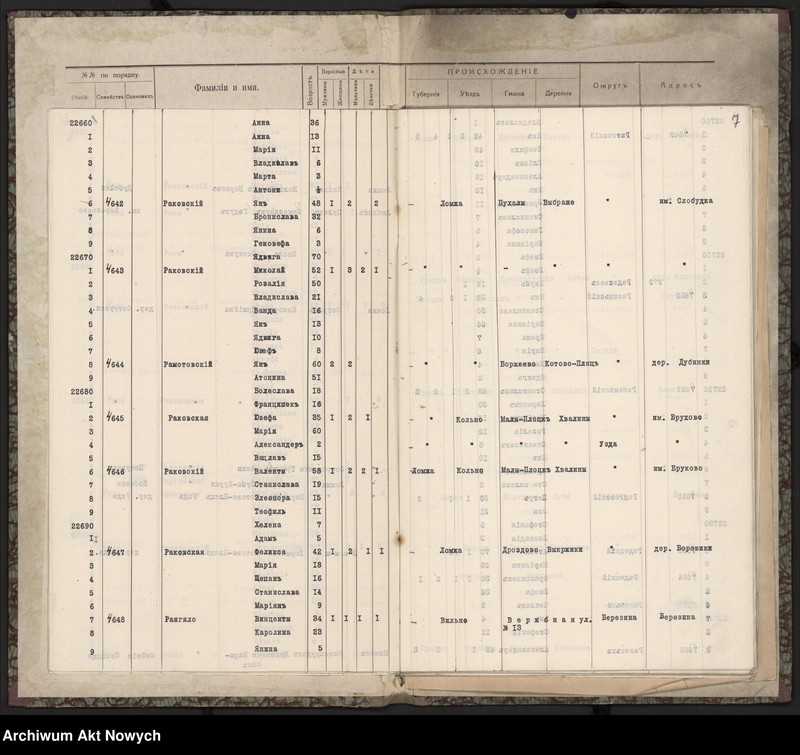 7
№№ по порядку.
Фамилія и имя.
Возрастъ
Взрослые
Дѣти
ПРОИСХОЖДЕНІЕ
Округъ
Адресъ
Семействъ
Одинокихъ
Мужчины
Женщины
Мальчики
Дѣвочки
Губернія
Уѣздъ
Гмина
Деревня
22660 Анна 36
1 Анна 13
2 Марія 11
3 Владиславъ 6
4 Марта 3
5 Антонн ½
6 4/642 Раковскій Янъ 48 1 2 2 – Ломжа Пухалы Выбране " им. Слобудка
7 Брониславa 32
8 Янина 6
9 Геновефа 3
22670 Ядвига 70
1 4/643 Раковскій Миколай 52 1 3 2 1 – " " – " " " "
2 Розалія 50
3 Владислава 21
4 Ванда 16
5 Янъ 13
6 Ядвига 10
7 Юзефъ 8
8 4/644 Рамотовскій Янъ 60 2 2 – " " Боржеево Котово-Плацъ " дер. Дубники
9 Атонина 51
22680 Болеслава 18
1 Францишекъ 16
2 4/645 Раковская Юзефа 35 1 2 1 – " Кольно Малы-Плоцкъ Хвалины " им. Брухово
3 Марія 60
4 Александеръ 2 – " " " " Узда "
5 Вацлавъ 15
6 4/646 Раковскій Валенты 58 1 2 2 1 Ломжа Кольно Малы-Плоцкъ Хвалины " им. Бруково
7 Станислава 19
8 Элеонора 15
9 Теофиль 11
22690 Хелена 7
1 Адамъ 5
2 4/647 Раковская Феликса 42 1 2 1 1 – Ломжа Дроздово Выкржики " дер. Боровики
3 Марія 18
4 Щепанъ 16
5 Станислава 14
6 Маріянъ 9
7 4/648 Рангяло Винценты 34 1 1 1 1 – Вильно Вержбная ул. Березина Березина
№ 13
8 Каролина 23
9 Янина 5
Archiwum Akt Nowych